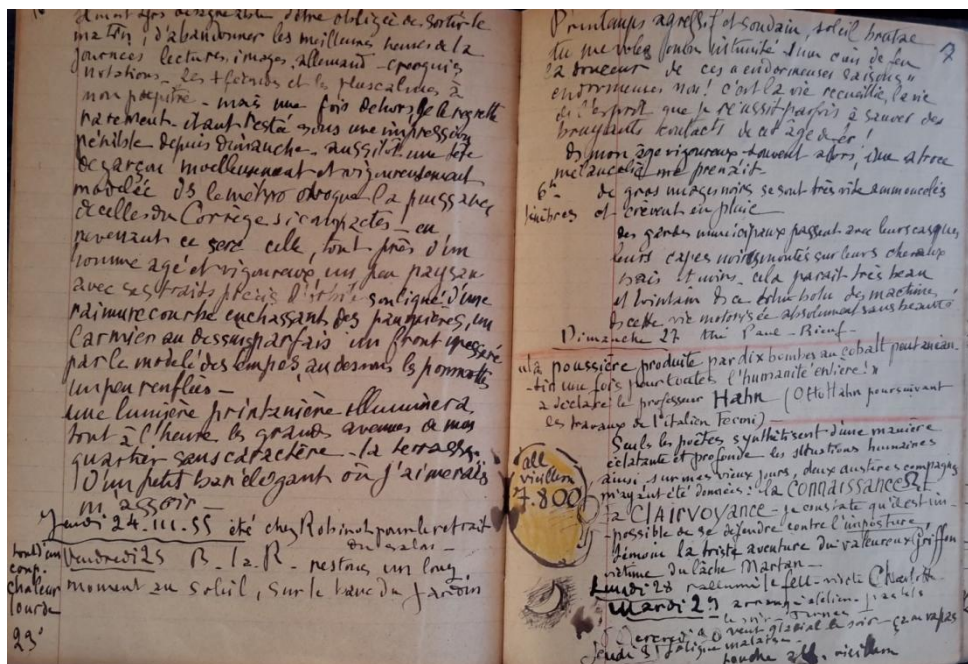 désagréable d'être obligée de sortir le
matin, d'abandonner les meilleures heures de la
journées lectures, images, allemand - croquis
notations - les + feinds et les muscalines à
mon pupitre - mais une fois dehors, je le regrette
rarement - étant restée sous une impression
pénible depuis dimanche - aussitôt une tête
de garçon moelleusement et vigoureusement
modelée ds le métro évoque la puissance
de celles du Corrège si compactes - en
revenant ce sera celle, tout près d'un
homme agé et vigoureux un peu paysan
avec ses traits précis souligné d'une
rainure courbe enchassant des paupières, un
au dessus parfais un front
par le modelé des tempes, au dessous les pommettes
un peu renflées -
une lumière printanière illuminera
tout à l'heure les grands avenues de mon
quartier sans caractère - la terrasse
d'un petit bar élégant où j'aimerais
m'assoir -
Jeudi 24.III.55 été chez Robinot pour le retrait
du salon -
Vendredi 25 B. la R. restons un long
moment au soleil, sur le banc du jardin
tout d'un
coup.
chaleur
lourde
23°
7
Printemps agressif et soudain, soleil brutal
tu me voles mon intimité d'un coin de feu
la douceur de ces "endormeuses saisons"
endormeuses non! c'est la vie recueillie, la vie
de l'esprit que je réussit parfois à sauver des
bruyants contacts de cet âge de fer!
ds mon âge vigoureux - souvent alors, une atroce
melancolie me prenait -
6h
fenêtres
de gros nuages noirs se sont très vite ammoncelés
et crèvent en pluie
des gardes municipaux passent avec leurs casques
leurs capes noires montés sur leurs chevaux
bais et noirs, cela parait très beau
et lointain ds ce des machines,
ds cette vie motorisée absolument sans beauté
Dimanche 27 thé Paul - Rieuf -
"La poussière produite par dix bombes au cobalt peut anéan-
-tir une fois pour toutes l'humanité entière!"
a déclaré le professeur Hahn (Otto Hahn poursuivant
les travaux de l'italien Fermi)
Seuls les poètes synthétisent d'une manière
éclatante et profonde les situations humaines
ainsi, sur mes vieux jours, deux austères compagnes
m'ayant été données: la CONNAISSANCE et
la CLAIRVOYANCE - je constate qu'il est im-
-possible de se défendre contre l'imposture,
témoin la triste aventure du valeureux Griffon
victime du lâche Martan -
all
vicillum
7.800
Lundi 28 rallumé le feu - visite Charlotte
Mardi 29 arrangé atelier -
le soir -
Mercredi 30 vent glacial le soir - ça ne va pas
Jeudi 31 fatigue malaise -
touche all. vicillum